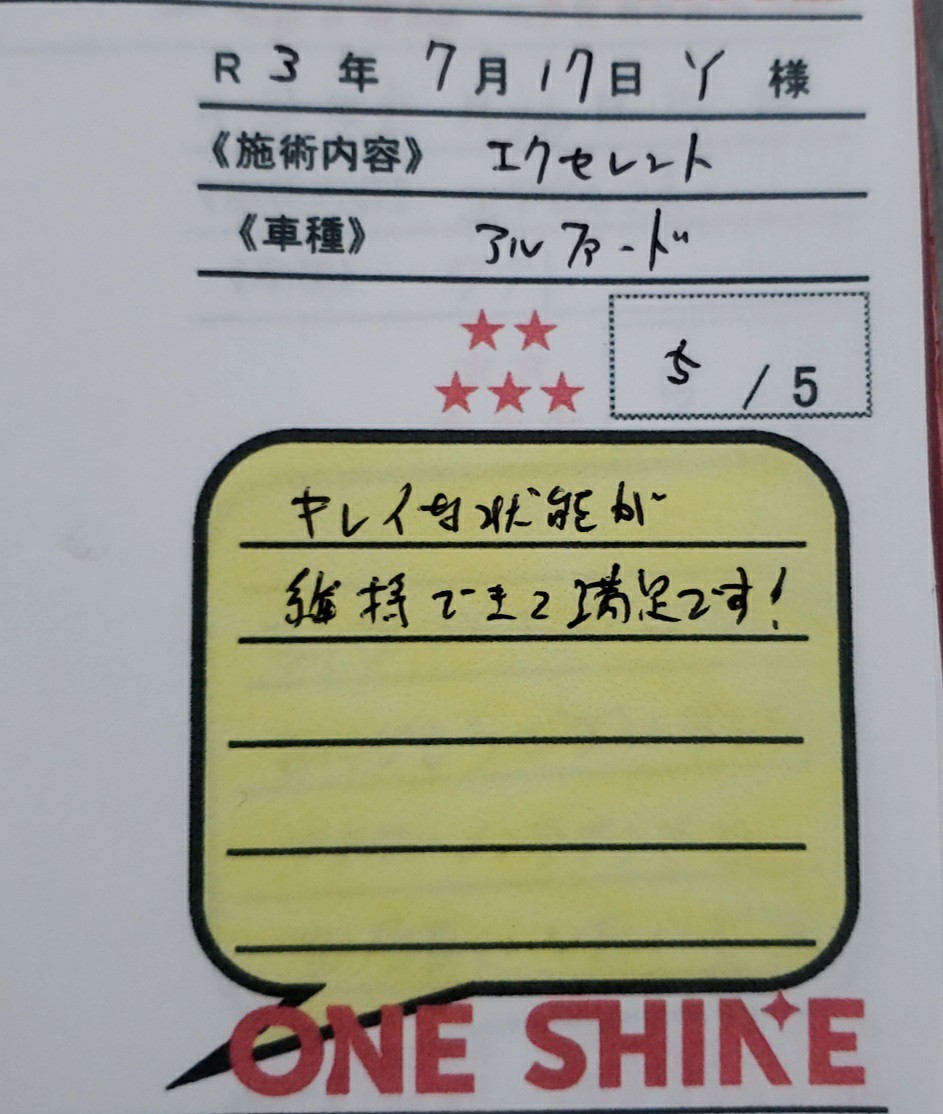 R 3 年 7 月 17 日 Y 様
《施術内容》 エクセレント
《車種》 アルファード
★★
★★★
5 / 5
キレイな状態が
維持できて満足です!
ONE SHINE